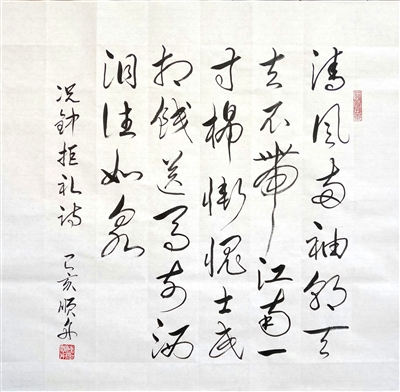 清风两袖朝天
去不帶江南一
寸棉慚愧士民
相餞送马前洒
泪注如泉
况钟拒礼诗
己亥顺